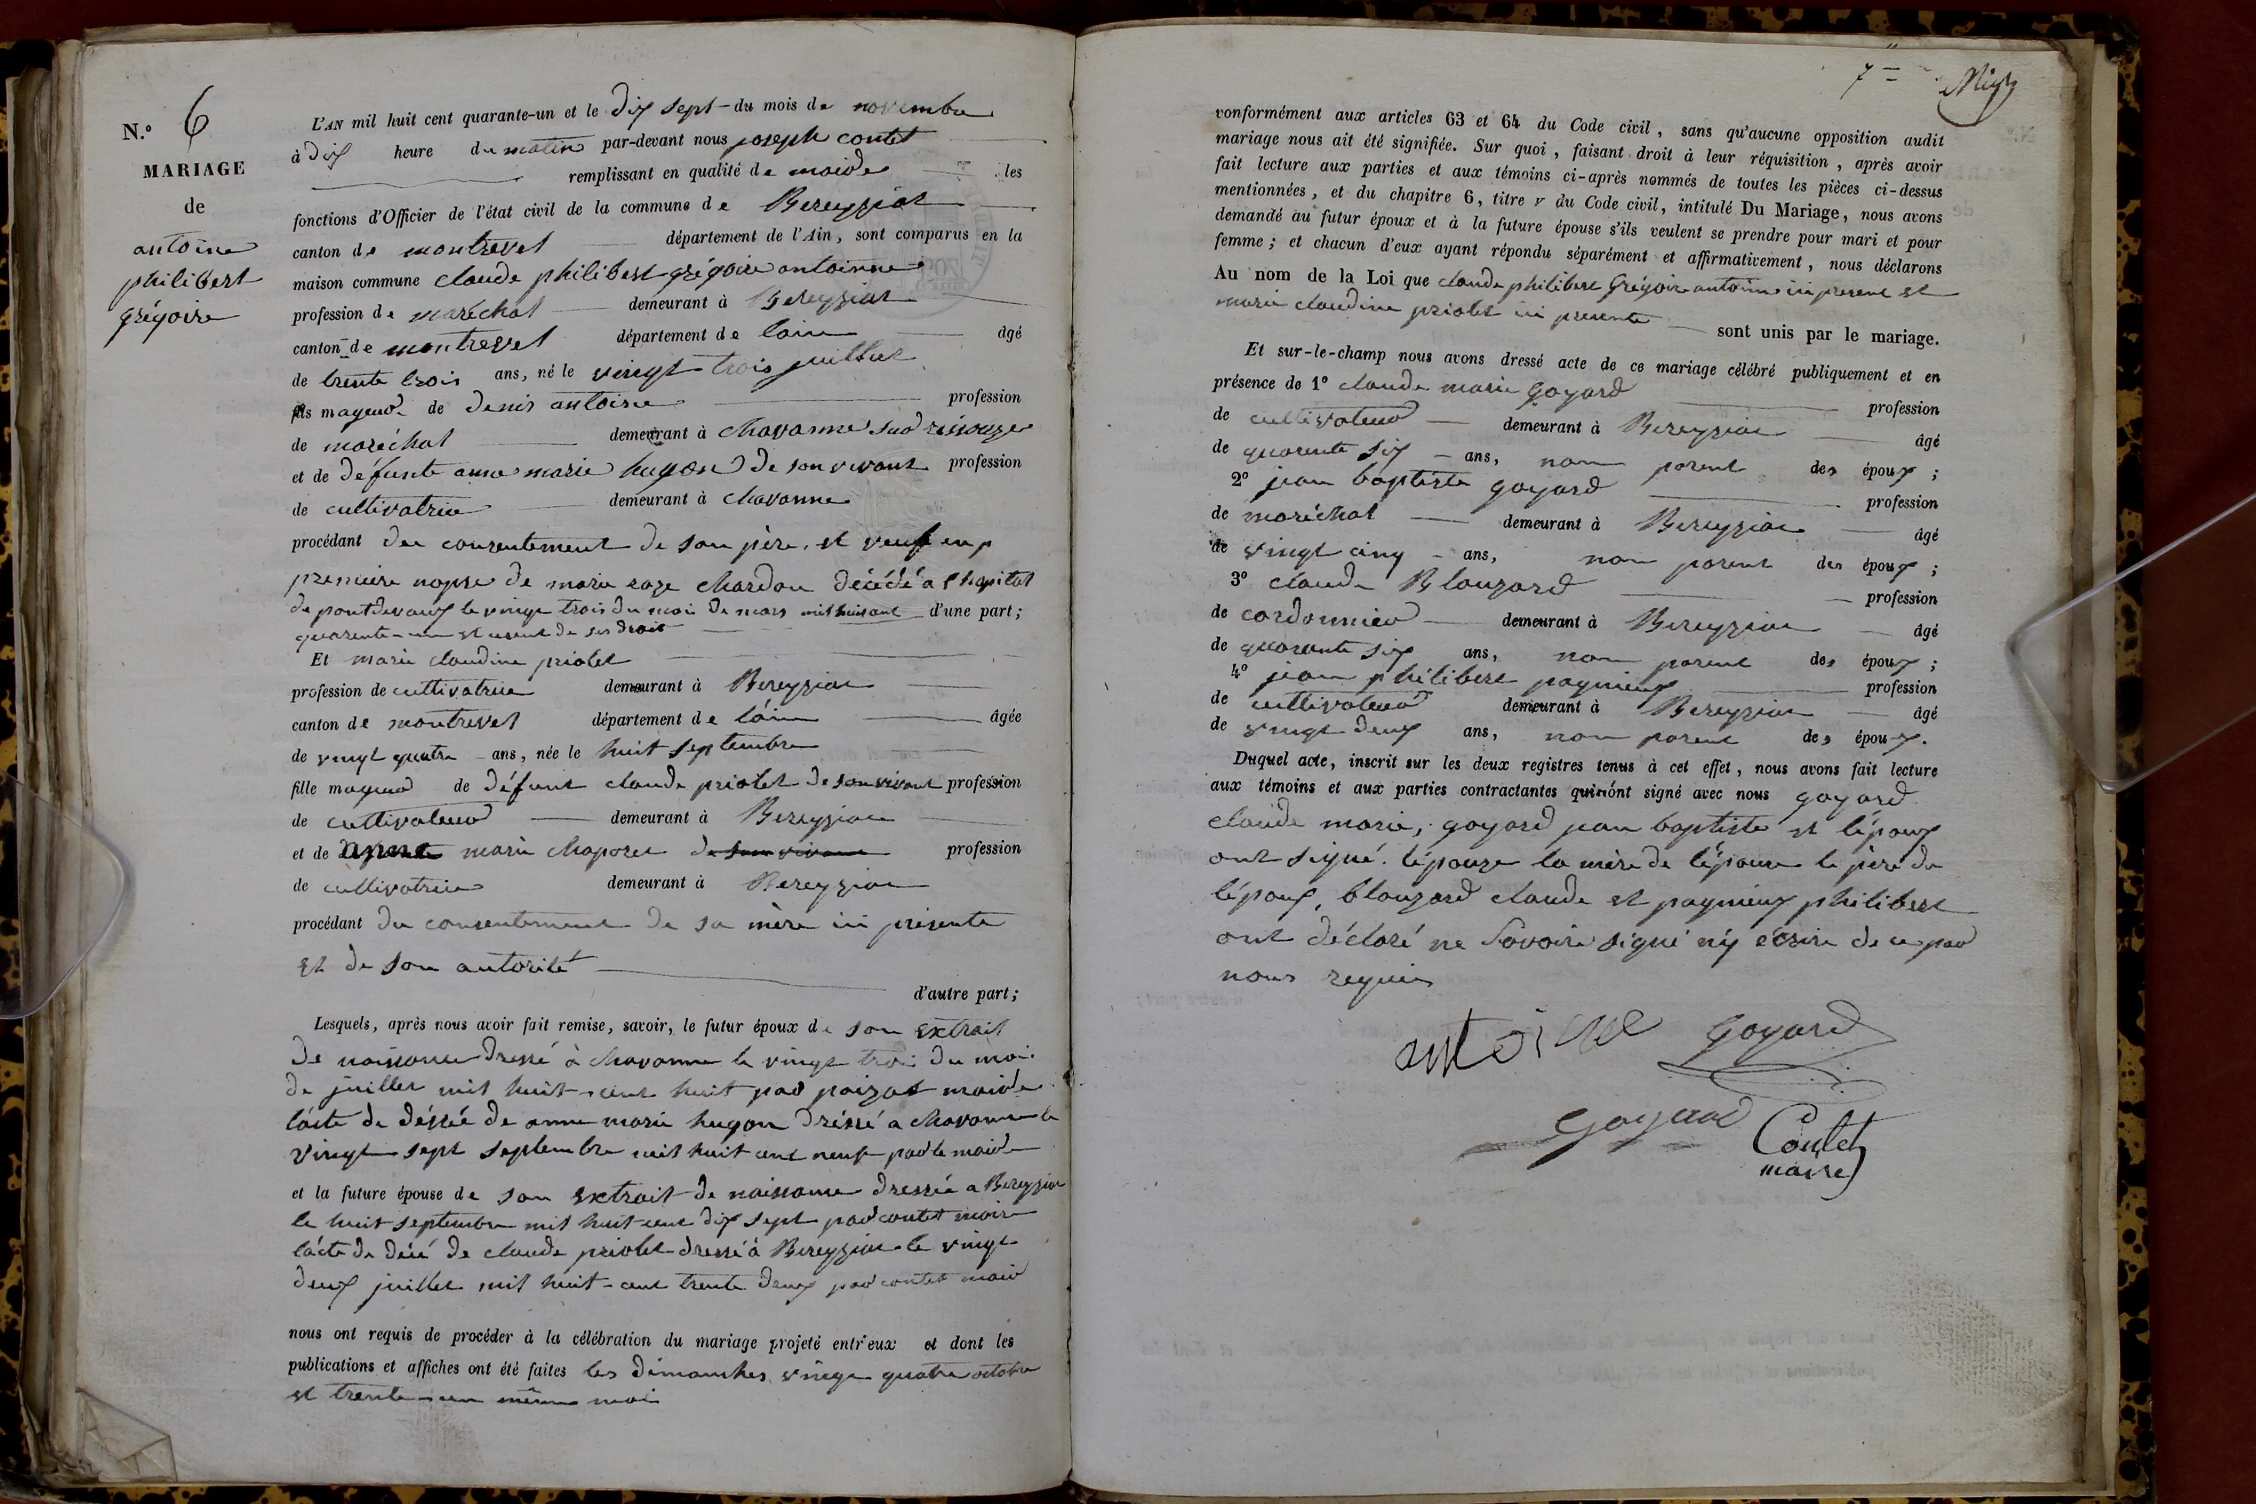 N.º 6
MARIAGE
de
antoine
philibert
grégoire
L'AN mil huit cent quarante-un et le dix sept du mois de novembre
à dix heure du matin par-devant nous joseph contet
remplissant en qualité de maire les
fonctions d'Officier de l'état civil de la commune de Bereyziat
canton de montrevel département de l'Ain, sont comparus en la
maison commune claude philibert grégoire antoinne
profession de maréchal demeurant à Bereyziat
canton de montrevel département de lain âgé
de trente trois ans, né le vingt trois juillet
fils mageur de denis antoine profession
de maréchal demeurant à chavanne sur rissouze
et de défunte anne marie hugon de son vivant profession
de cultivatrice demeurant à chavanne
procédant du consentement de son père, et veuf en
premiere nopse de marie roze chardon décédé a l'hopital
de pontdevaux le vingt trois du moi de mars mil huit cent d'une part;
quarente-un et usent de ses droit
Et marie claudine priolet
profession de cultivatrice demeurant à Bereyziat
canton de montrevel département de láin âgée
de vingt quatre ans, née le huit septembre
fille mageur de défunt claude priolet de son vivant profession
de cultivateur demeurant à Bereyziat
et de anne marie chaporet de son vivant profession
de cultivatrice demeurant à Bereyziat
procédant du consentement de sa mère ici présente
et de son autorité
d'autre part;
Lesquels, après nous avoir fait remise, savoir, le futur époux de son extrait
de naissance dressé à chavanne le vingt trois du moi
de juillet mil huit-cent huit par poizat maire
lácte de déssée de anne marie hugon dréssé a chavanne le
vingt sept septembre mil huit cent neuf par le maire
et la future épouse de son extrait de naissance dressée a Bereyziat
le huit septembre mil huit cent dix sept par contet maire
lácte de décé de claude priolet dressé à Bereyziat le vingt
deux juillet mil huit-cent trente deux par contet maire
nous ont requis de procéder à la célébration du mariage projeté entr'eux et dont les
publications et affiches ont été faites les dimanches vingt quatre octobre
et trente-un même moi
7
conformément aux articles 63 et 64 du Code civil, sans qu'aucune opposition audit
mariage nous ait été signifiée. Sur quoi, faisant droit à leur réquisition, après avoir
fait lecture aux parties et aux témoins ci-après nommés de toutes les pièces ci-dessus
mentionnées, et du chapitre 6, titre v du Code civil, intitulé Du Mariage, nous avons
demandé au futur époux et à la future épouse s'ils veulent se prendre pour mari et pour
femme; et chacun d'eux ayant répondu séparément et affirmativement, nous déclarons
Au nom de la Loi que claude philibert Grégoire antoine ici present et
marie claudine priolet ici presente sont unis par le mariage.
Et sur-le-champ nous avons dressé acte de ce mariage célébré publiquement et en
présence de 1º claude marie goyard profession
de cultivateur demeurant à Bereyziat âgé
de quarente six ans, non parent des époux;
2º jean baptiste goyard profession
de maréchal demeurant à Bereyziat âgé
de vingt cinq ans, non parent des époux;
3º claude Blouzard profession
de cordonnier demeurant à Bereyziat âgé
de quarante six ans, non parent des époux;
4º jean philibert pagnieux profession
de cultivateur demeurant à Bereyziat âgé
de vingt deux ans, non parent des époux.
Duquel acte, inscrit sur les deux registres tenus à cet effet, nous avons fait lecture
aux témoins et aux parties contractantes qui ont signé avec nous goyard
claude marie, goyard jean baptiste et lépoux
ont signé. lépouze la mère de lépouse le père de
lépoux, blouzard claude et pagnieux philibert
ont déclaré ne Savoir signé ny écrire de ce par
nous requis
antoine goyard
goyard Contet
maire